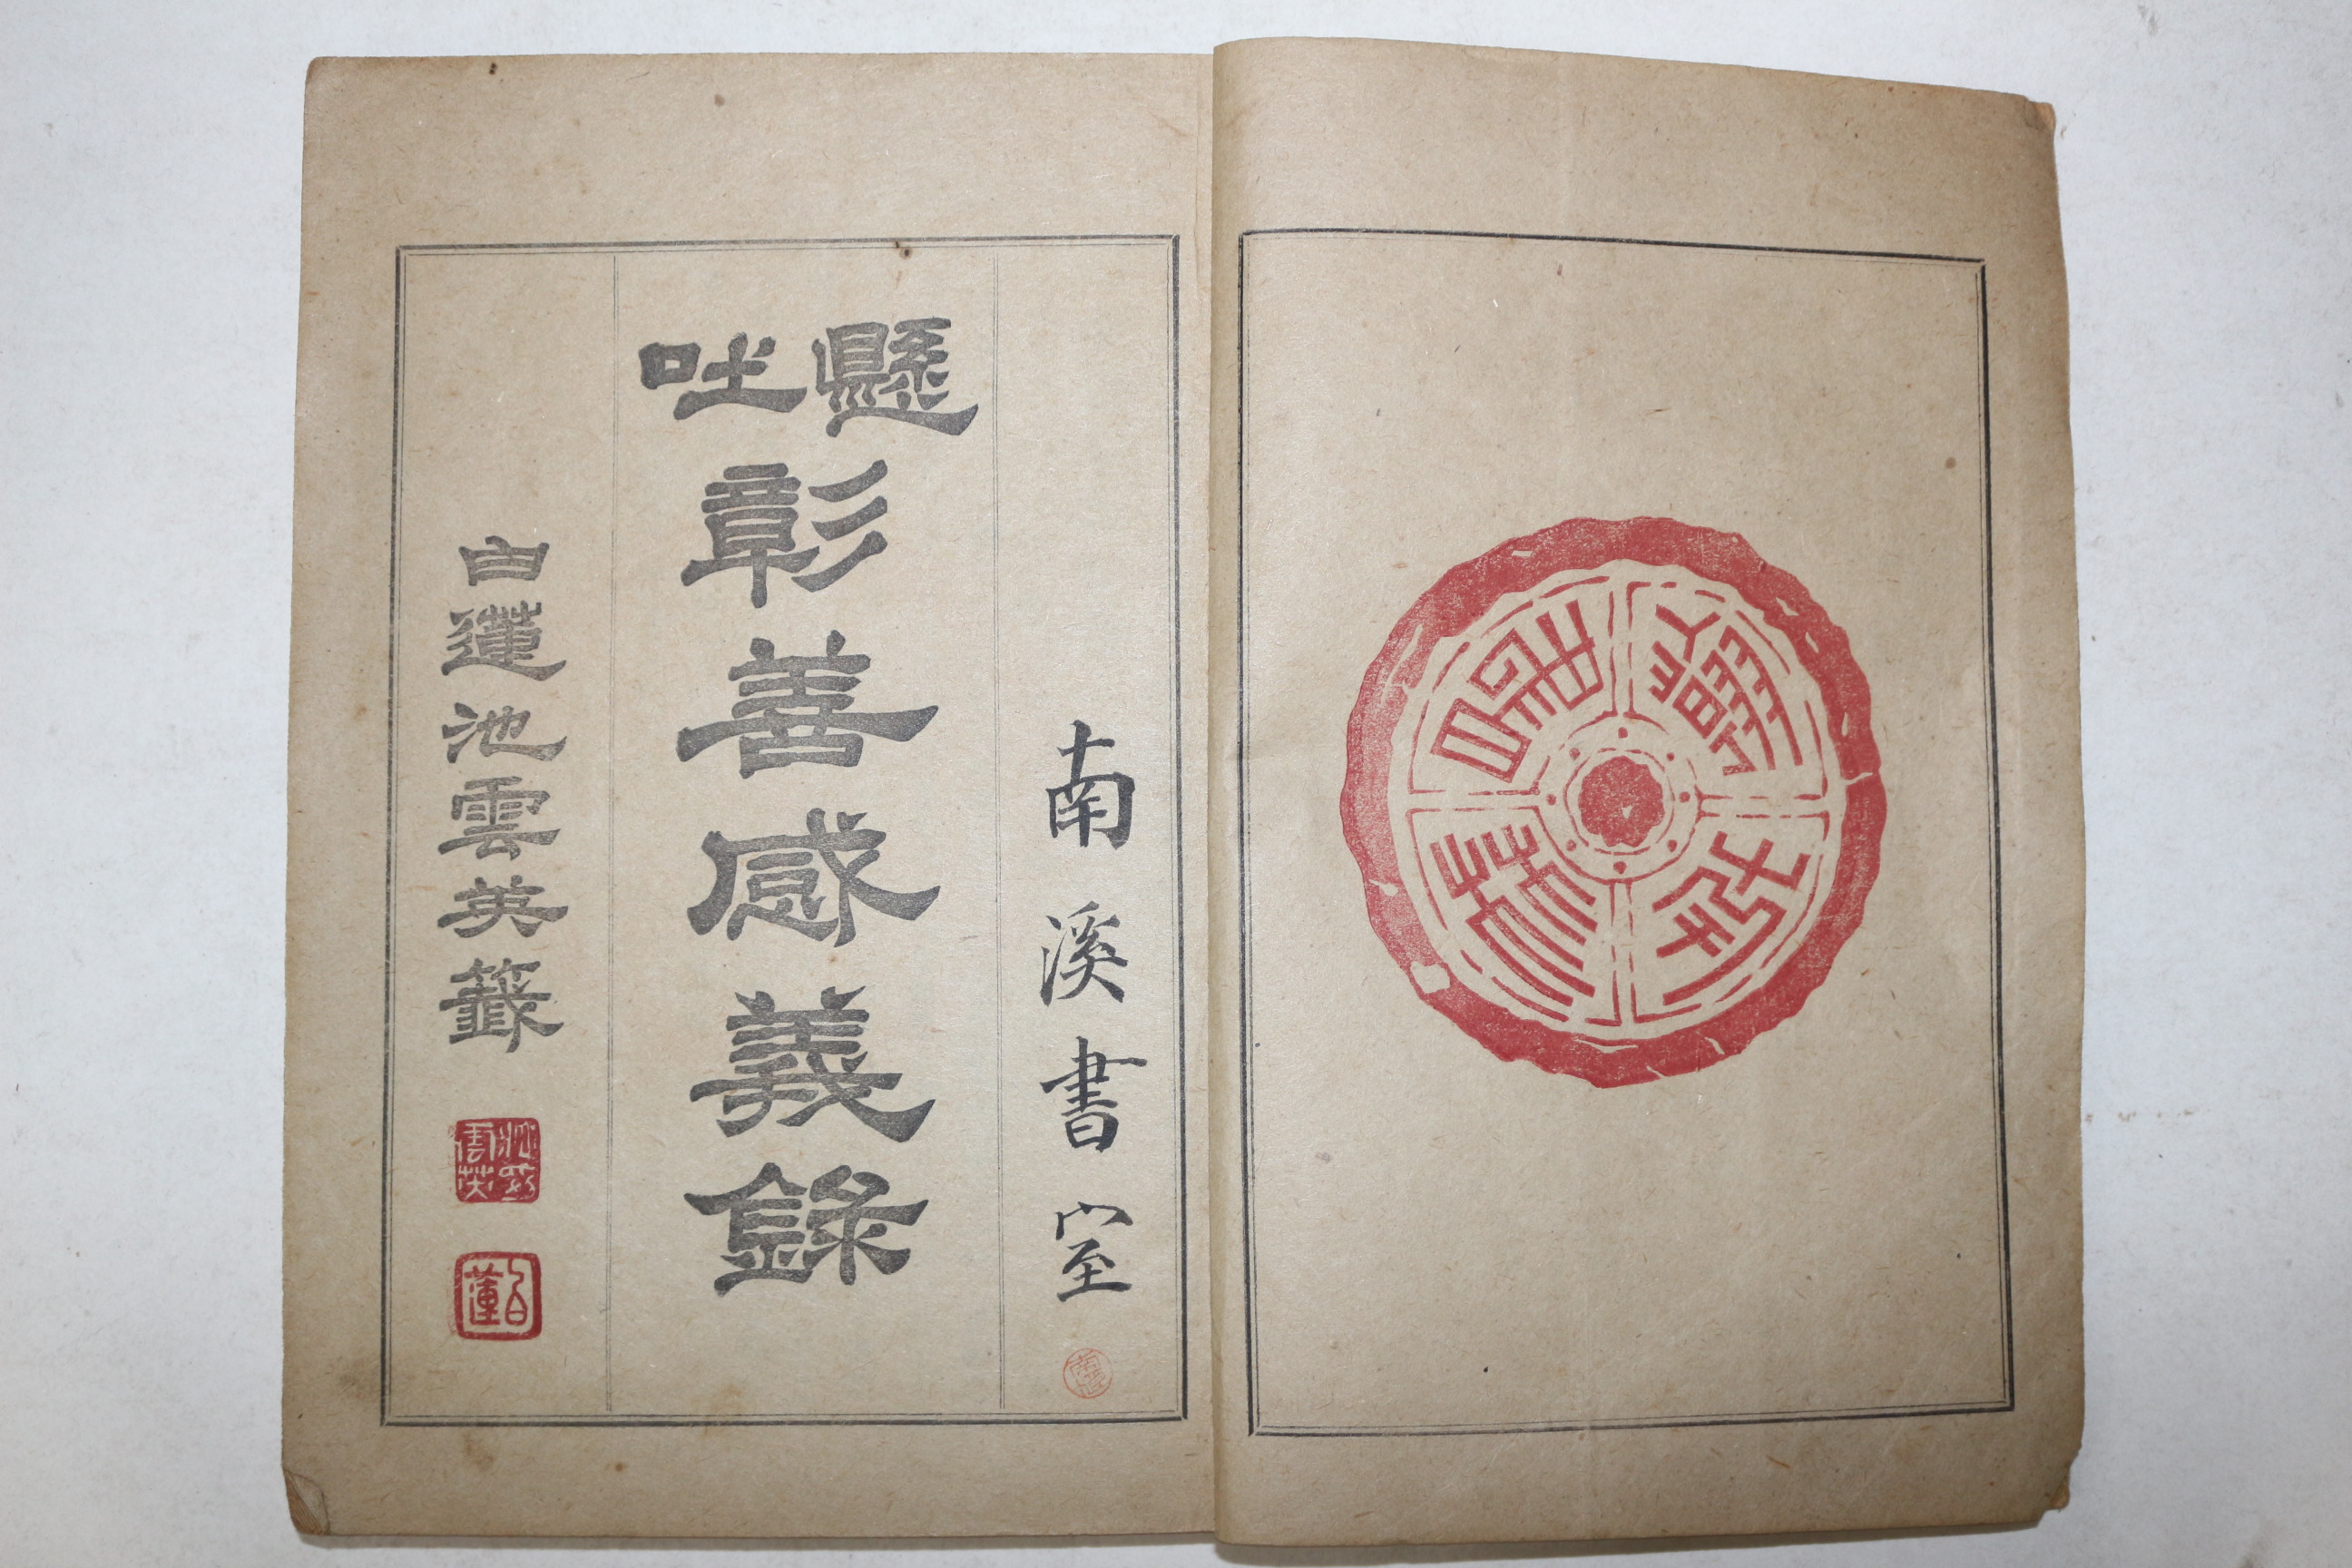 南溪書室
懸吐
彰善感義錄
白蓮池雲英籤
白蓮